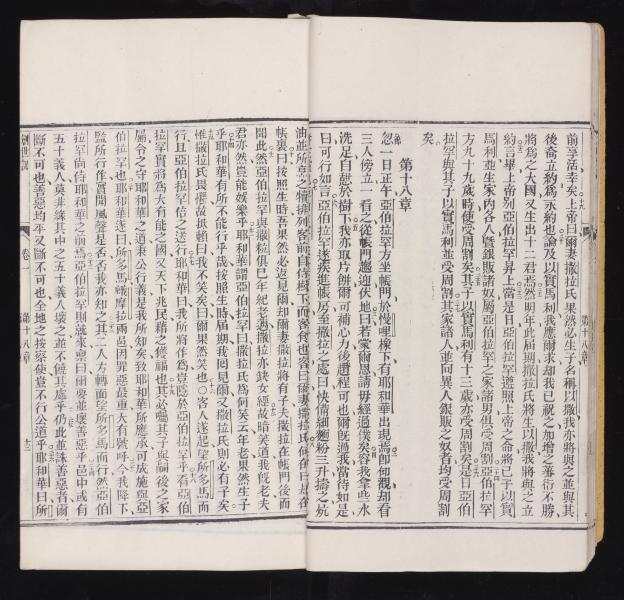 前享活幸矣上帝曰爾妻撒拉氏果然必生子名稱以撒我亦將與之並與其
後裔立約爲永約也論及以實馬利我應爾求却我已祝之加增之蕃衍不勝
將爲之大國又生出十二君焉然明年此屆期撒拉氏將生以撒我將與之立
約言畢上帝別亞伯拉罕昇上當是日亞伯拉罕遵照上帝之命將已子以實
馬利亞生家內各人暨銀販諸奴屬亞伯拉罕之家諸男俱受周割亞伯拉罕
方九十九歲時便受周割矣其子以實馬利有十三歲亦受周割矣是日亞伯
拉罕與其子以實馬利並受周割其家諸人並向異人銀販之奴者均受周割
矣
第十八章
忽一日正午亞伯拉罕方坐帳門於哩橡下有耶和華出現焉卽觀却看
三人傍立一看之從帳門趨迎伏地曰若蒙爾恩請毋經過僕矣容我拿些水
洗足自憩於樹下我亦取片餅爾可補心力後趲程可也爾旣過我當待如是
曰可行如言亞伯拉罕遂疾進帳房至撒拉之處曰快備細麵粉三升摶之炕
油並所烹之犢排列客前自侍樹下而客食也客曰爾妻撒拉氏何在曰却在
帳裏曰按照生時吾果然必返見爾却爾妻撒拉將有子夫撒拉在帳門後而
聞此然亞伯拉罕與撒拉俱已年紀老邁撒拉亦缺女經故暗笑道我旣老夫
君亦然豈能娛樂乎耶和華謂亞伯拉罕曰撒拉氏爲何笑云年老果然生子
乎耶和華有所不能行乎哉按照生時屆期我囘見爾又撒拉氏則必有子矣
惟撒拉氏畏懼故抵賴曰我不笑矣曰爾果然笑也客人遂起望所多馬而
行且亞伯拉罕偕之送行耶和華曰我所將作爲豈隱於亞伯拉罕乎看亞伯
拉罕實將爲大有能之國又天下兆民藉之獲福也其必囑其子與嗣後之家
屬令之守耶和華之道秉公行義是我所知矣致耶和華所應承可成施與亞
伯拉罕也耶和華遂曰所多馬蛾摩拉兩邑因罪惡最重大有號呼今我降下
監所行作實聞風聲是否吾我亦知之其二人方轉面望所多馬而行然亞伯
拉罕尚侍耶和華之前焉亞伯拉罕則就來禀曰爾要並壞善惡乎邑中或有
五十義人莫非緣其中之五十義人壞之並不饒其處乎仍此並誅善惡者爾
斷不可也善惡均平又斷不可也全地之按察使豈不行公道乎耶和華曰所
創世
卷一
第十八章